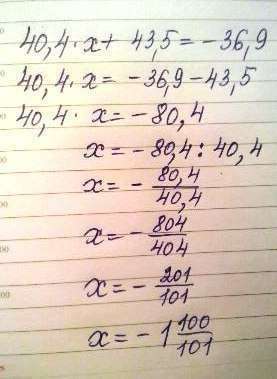 40,4 · x + 43,5 = -36,9
40,4 · x = -36,9 - 43,5
40,4 · x = -80,4
x = -80,4 : 40,4
x = - 80,4/40,4
x = - 804/404
x = - 201/101
x = -1 100/101